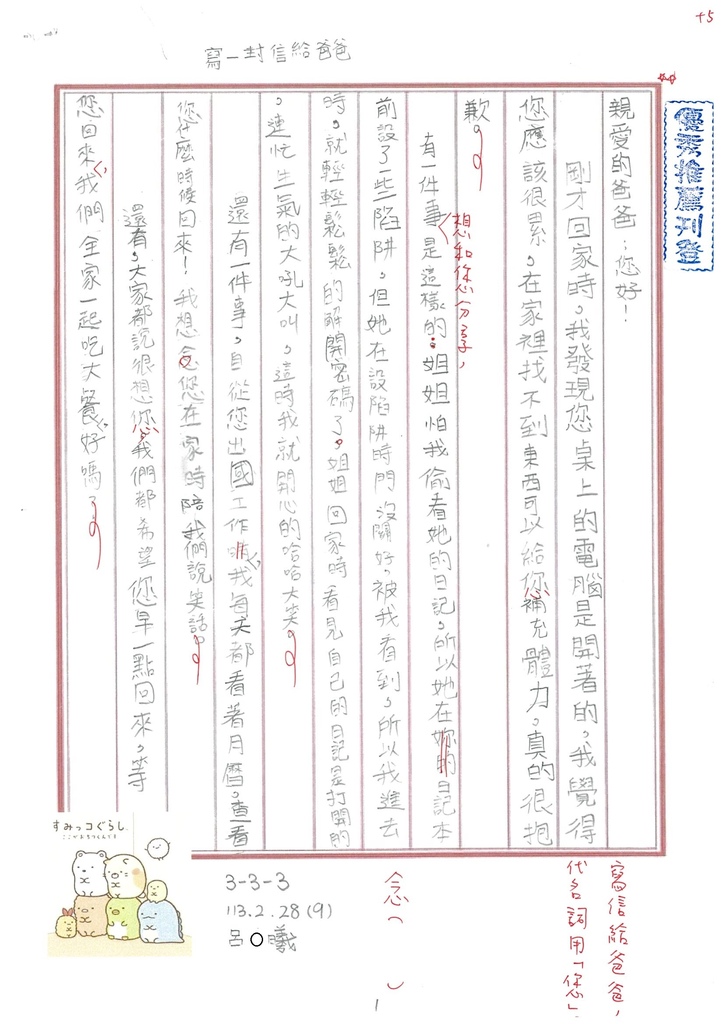 +5
寫一封信給爸爸
優秀推薦刊登
親愛的爸爸：您好！
剛才回家時，我發現您桌上的電腦是開著的，我覺得
您應該很累，在家裡找不到東西可以給您補充體力，真的很抱
歉。
想和您分享，
有一件事是這樣的：姐姐怕我偷看她的日記，所以她在妳的日記本
前設了一些陷阱，但她在設陷阱時門沒關好，被我看到，所以我進去
時，就輕輕鬆鬆的解開密碼了。姐姐回家時看見自己的日記是打開的
，連忙生氣的大吼大叫，這時我就開心的哈哈大笑。
還有一件事，自從您出國工作，我每天都看著月曆，查看
您什麼時候回來！我想念您在家時陪我們說笑話。
還有，大家都說很想您，我們都希望您早一點回來，等
您回來，我們全家一起吃大餐，好嗎？
寫信給爸爸，
代名詞用「您」。
念（ ）
すみっコぐらし
ここがおちつくんです
3-3-3
113.2.28(9)
呂〇曦
1